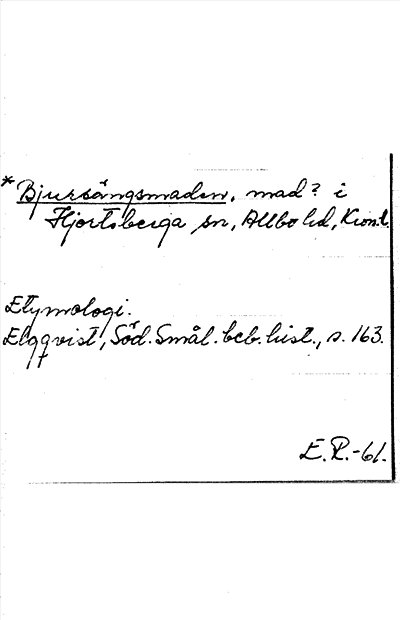 *Bjursängsmaden, mad? i
Hjortsberga sn, Allbo hd, Kron.l.
Etymologi.
Elgqvist, Söd. Smål. beb. hist., s. 163.
E.R.-61.